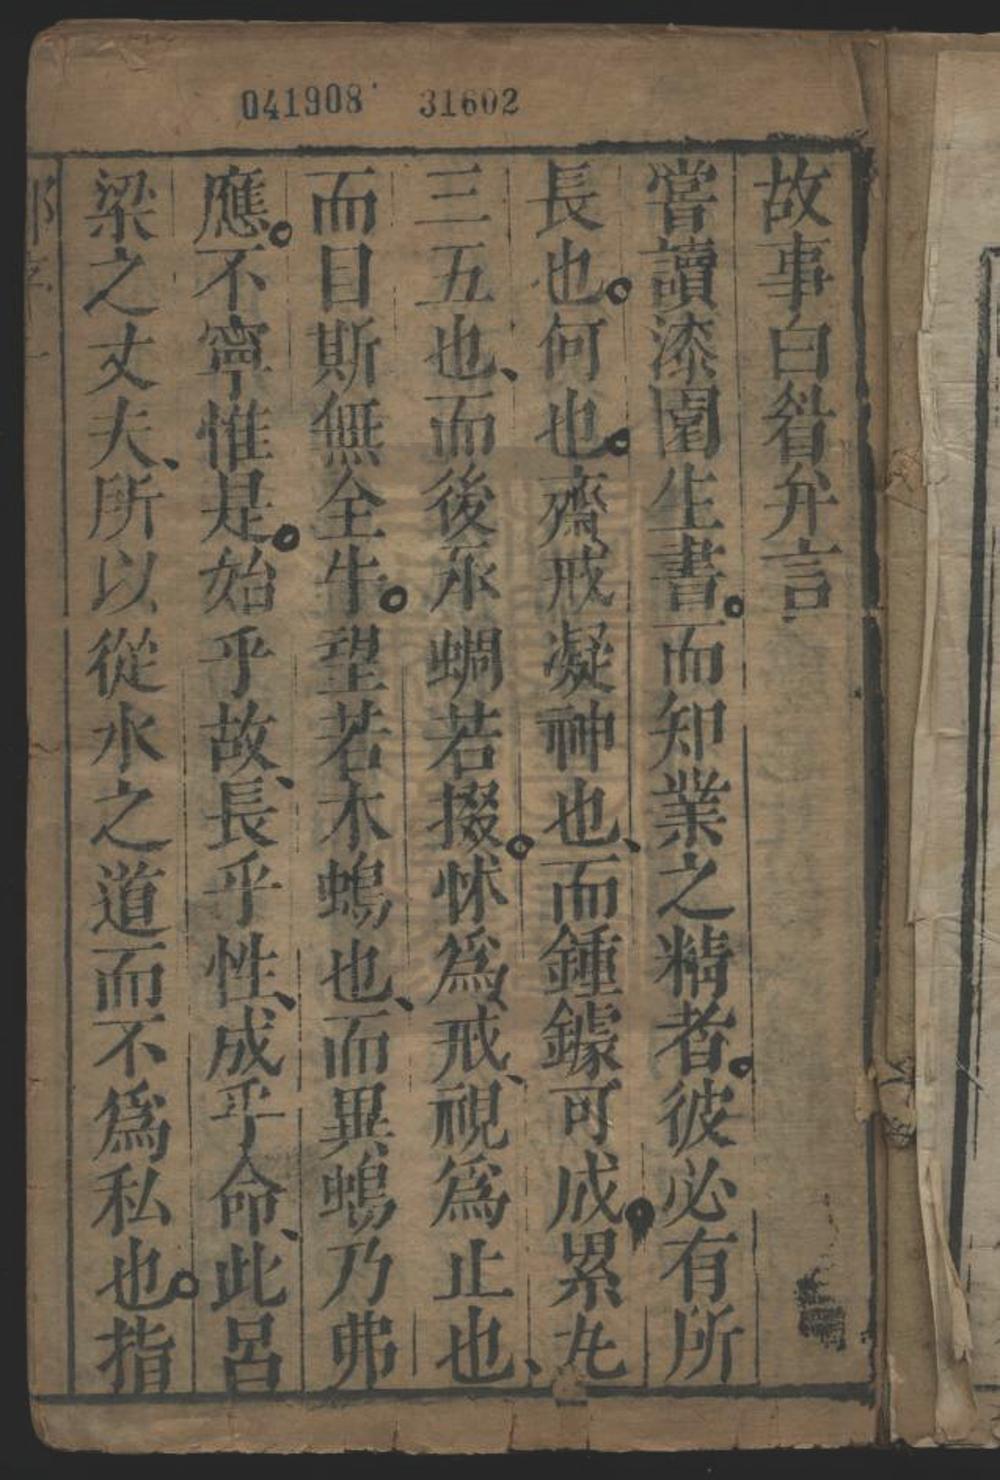 041908 31602
故事白眉弁言
嘗讀漆園生書。而知業之精者。彼必有所
長也。何也。齋戒凝神也、而鍾鐻可成。累丸
三五也、而後承蜩若掇。怵為戒、視為止也、
而目斯無全牛。望若木鷄也、而異鷄乃弗
應。不寧惟是。始乎故、長乎性、成乎命、此呂
梁之丈夫、所以從水之道而不為私也。指